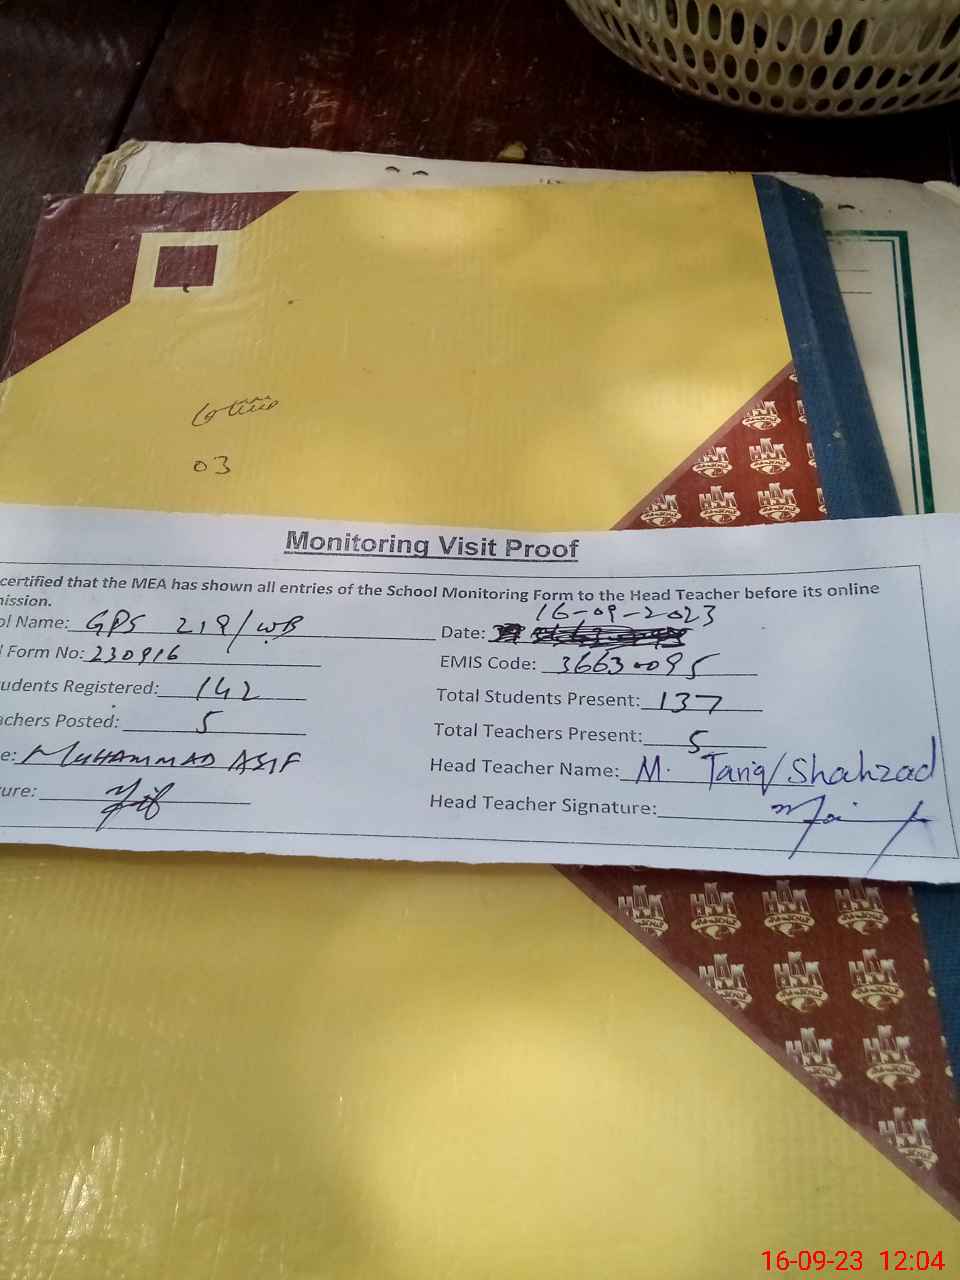 03
Monitoring Visit Proof
certified that the MEA has shown all entries of the School Monitoring Form to the Head Teacher before its online
ission.
ol Name: GPS 219/WB Date: 16-09-2023
l Form No: 230916 EMIS Code: 36630095
udents Registered: 142 Total Students Present: 137
achers Posted: 5 Total Teachers Present: 5
e: MUHAMMAD ASIF Head Teacher Name: M. Tariq/Shahzad
ure: Head Teacher Signature:
HAK
16-09-23 12:04